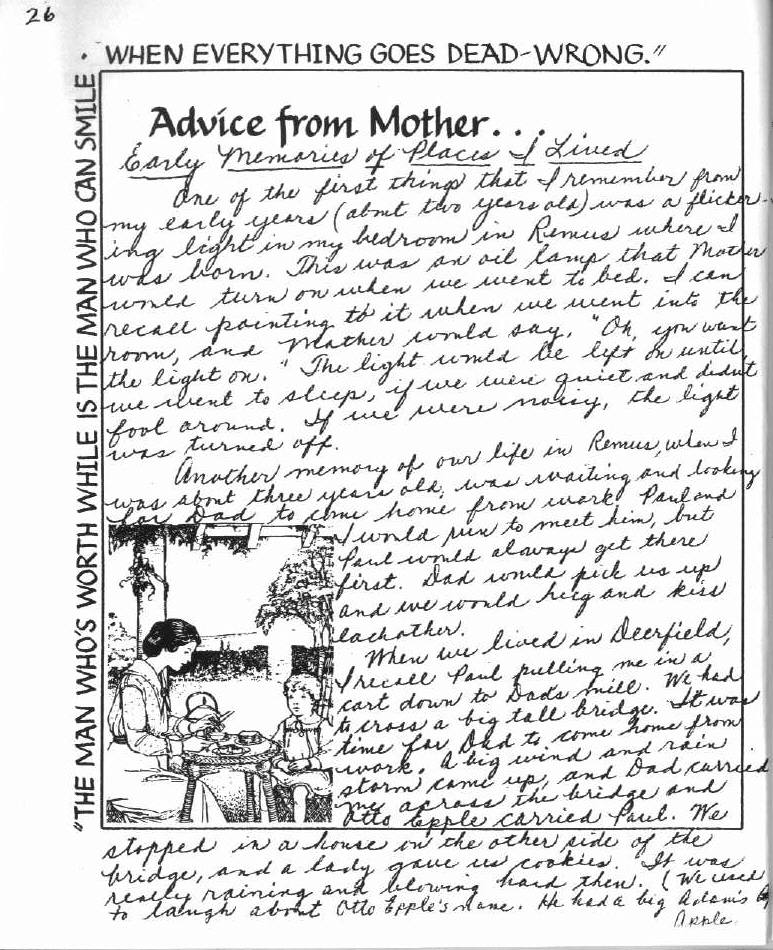 26
"THE MAN WHO'S WORTH WHILE IS THE MAN WHO CAN SMILE
· WHEN EVERYTHING GOES DEAD-WRONG."
Advice from Mother...
Early Memories of Places I Lived
One of the first things that I remember from
my early years (about two years old) was a flicker-
ing light in my bedroom in Remus where I
was born. This was an oil lamp that Mother
would turn on when we went to bed. I can
recall pointing to it when we went into the
room, and Mother would say, "Oh, you want
the light on." The light would be left on until
we went to sleep, if we were quiet and didn't
fool around. If we were noisy, the light
was turned off.
Another memory of our life in Remus, when I
was about three years old, was waiting and looking
for Dad to come home from work. Paul and
I would run to meet him, but
Paul would always get there
first. Dad would pick us up
and we would hug and kiss
eachother.
When we lived in Deerfield,
I recall Paul pulling me in a
cart down to Dad's mill. We had
to cross a big tall bridge. It was
time for Dad to come home from
work. A big wind and rain
storm came up, and Dad carried
me across the bridge and
Otto Epple carried Paul. We
stopped in a house on the other side of the
bridge, and a lady gave us cookies. It was
really raining and blowing hard then. (We used
to laugh about Otto Epple's name. He had a big Adam's
Apple.